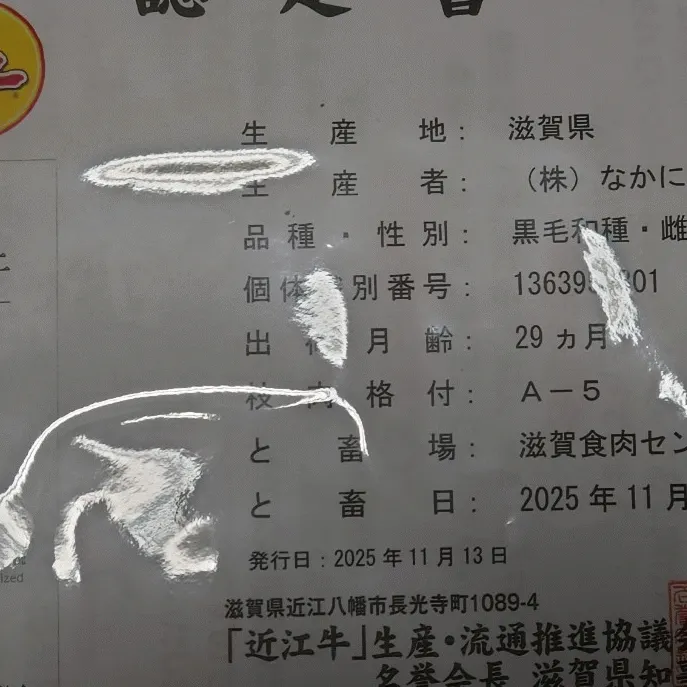 認定書
生産地：滋賀県
生産者：（株）なかに
品種・性別：黒毛和種・雌
個体 別番号：13639 01
出 月齢：29ヵ月
枝肉格付：A－5
と畜場：滋賀食肉セン
と畜日：2025年11月
発行日：2025年11月13日
滋賀県近江八幡市長光寺町1089-4
「近江牛」生産・流通推進協議
名誉会長 滋賀県知
ized